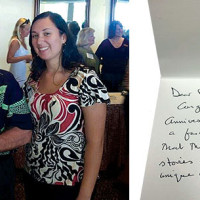 Dear
Cong
Annivers
a fa
Mark
stories
unique